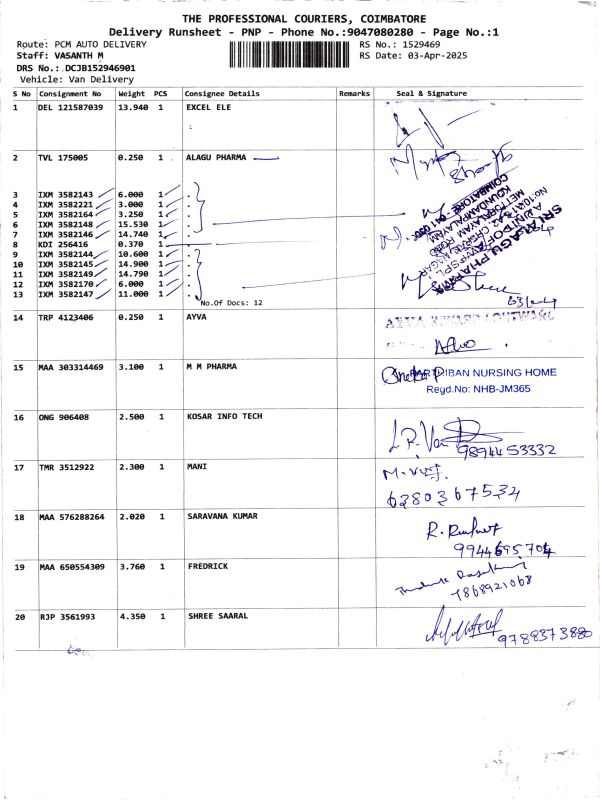 THE PROFESSIONAL COURIERS, COIMBATORE
Delivery Runsheet - PNP - Phone No.:9047080280 - Page No.:1
Route: PCM AUTO DELIVERY
RS No.: 1529469
Staff: VASANTH M
RS Date: 03-Apr-2025
DRS No.: DCJB152946901
Vehicle: Van Delivery
S No Consignment No Weight PCS Consignee Details Remarks Seal & Signature
1 DEL 121587039 13.940 1 EXCEL ELE
:
2 TVL 175005 0.250 1 . ALAGU PHARMA
3 IXM 3582143 6.000 1 .
4 IXM 3582221 3.000 1 .
5 IXM 3582164 3.250 1 .
6 IXM 3582148 15.530 1 .
7 IXM 3582146 14.740 1 .
8 KDI 256416 0.370 1
9 IXM 3582144 10.600 1 .
10 IXM 3582145 14.900 1 .
11 IXM 3582149 14.790 1 .
12 IXM 3582170 6.000 1 .
13 IXM 3582147 11.000 1 .
No.Of Docs: 12
SRI ALAGU PHARMA
COIMBATORE
14 TRP 4123406 0.250 1 AYVA
15 MAA 303314469 3.100 1 M M PHARMA
NURSING HOME
Regd.No: NHB-JM365
16 ONG 906408 2.500 1 KOSAR INFO TECH
9894453332
17 TMR 3512922 2.300 1 MANI
6380367534
18 MAA 576288264 2.020 1 SARAVANA KUMAR
9944695704
19 MAA 650554309 3.760 1 FREDRICK
7868921068
20 RJP 3561993 4.350 1 SHREE SAARAL
9788373880